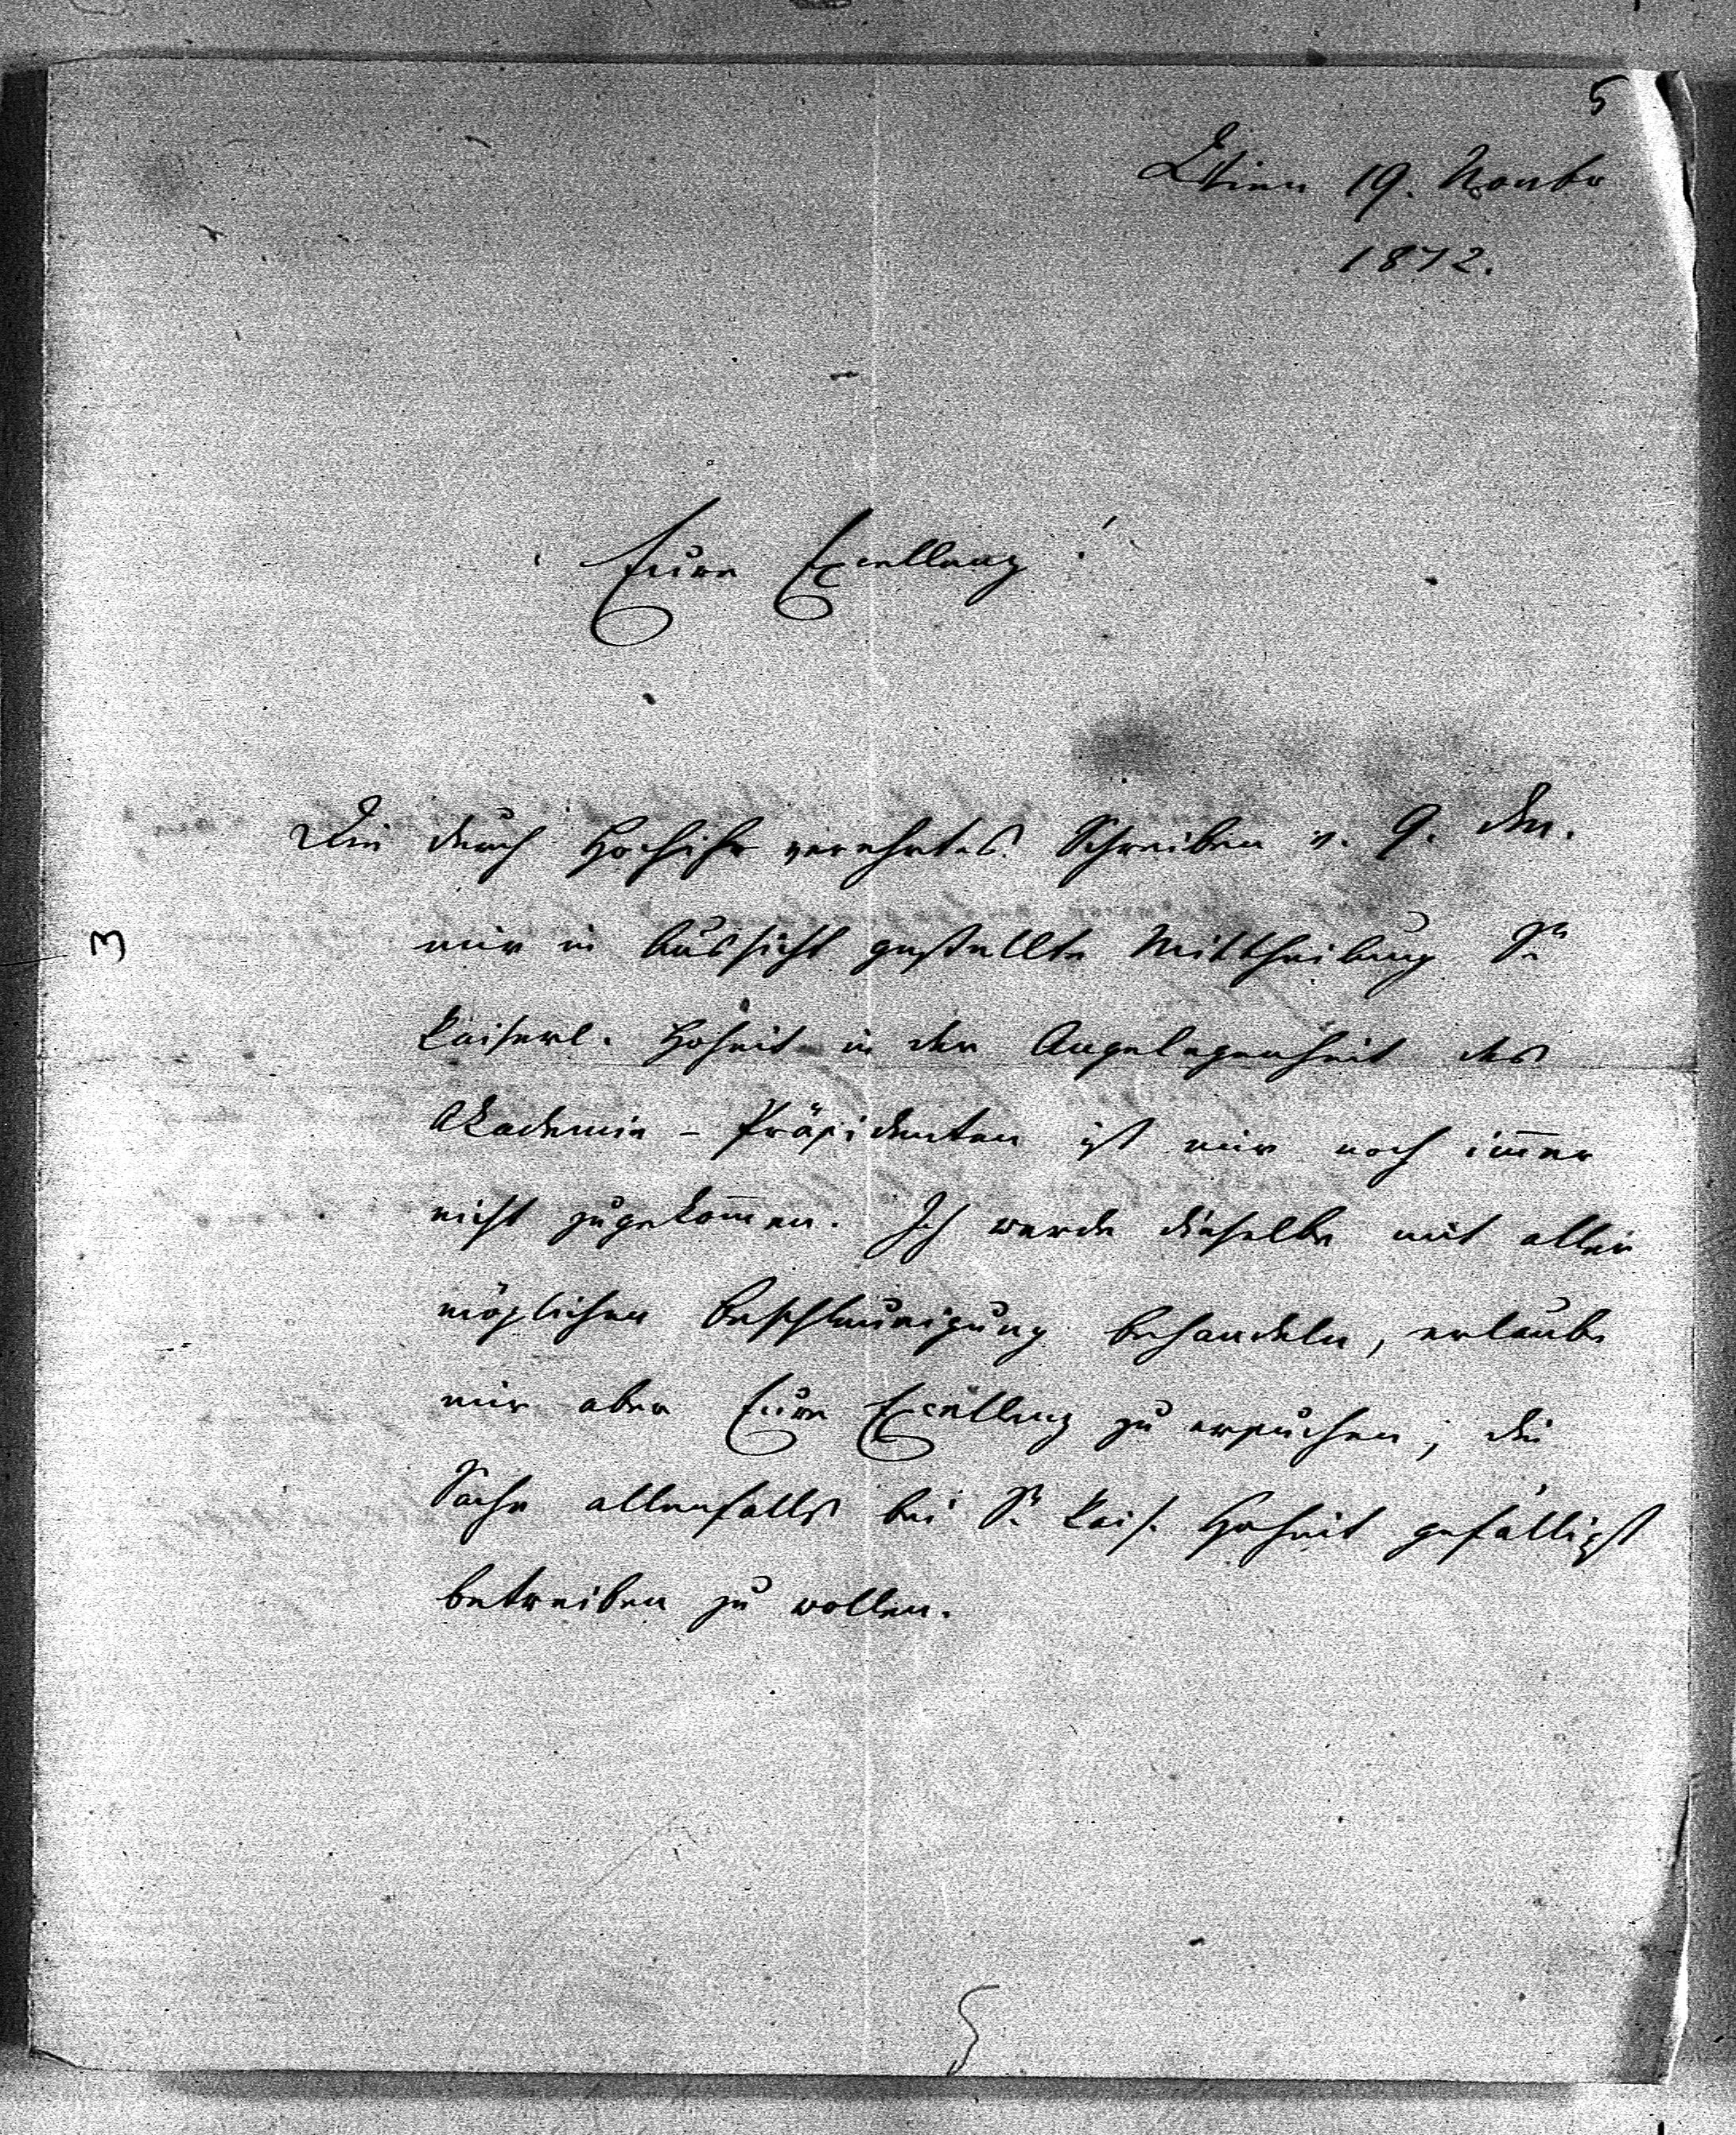 5
Wien 19. Novbr
1872.
Eure Excellenz!
Die durch Hochihr verehrtes Schreiben v. 9. den.
mir in Aussicht gestellte Mittheilung Sr
3
kaiserl. Hoheit in der Angelegenheit des
Akademie-Präsidenten ist mir noch im̅er
nicht zugekom̅en. Ich werde dieselbe mit aller
möglichen Beschleunigung behandeln, erlaube
mir aber Eure Excellenz zu ersuchen, die
Sache allenfalls bei Sr kais. Hoheit gefälligst
betreiben zu wollen.